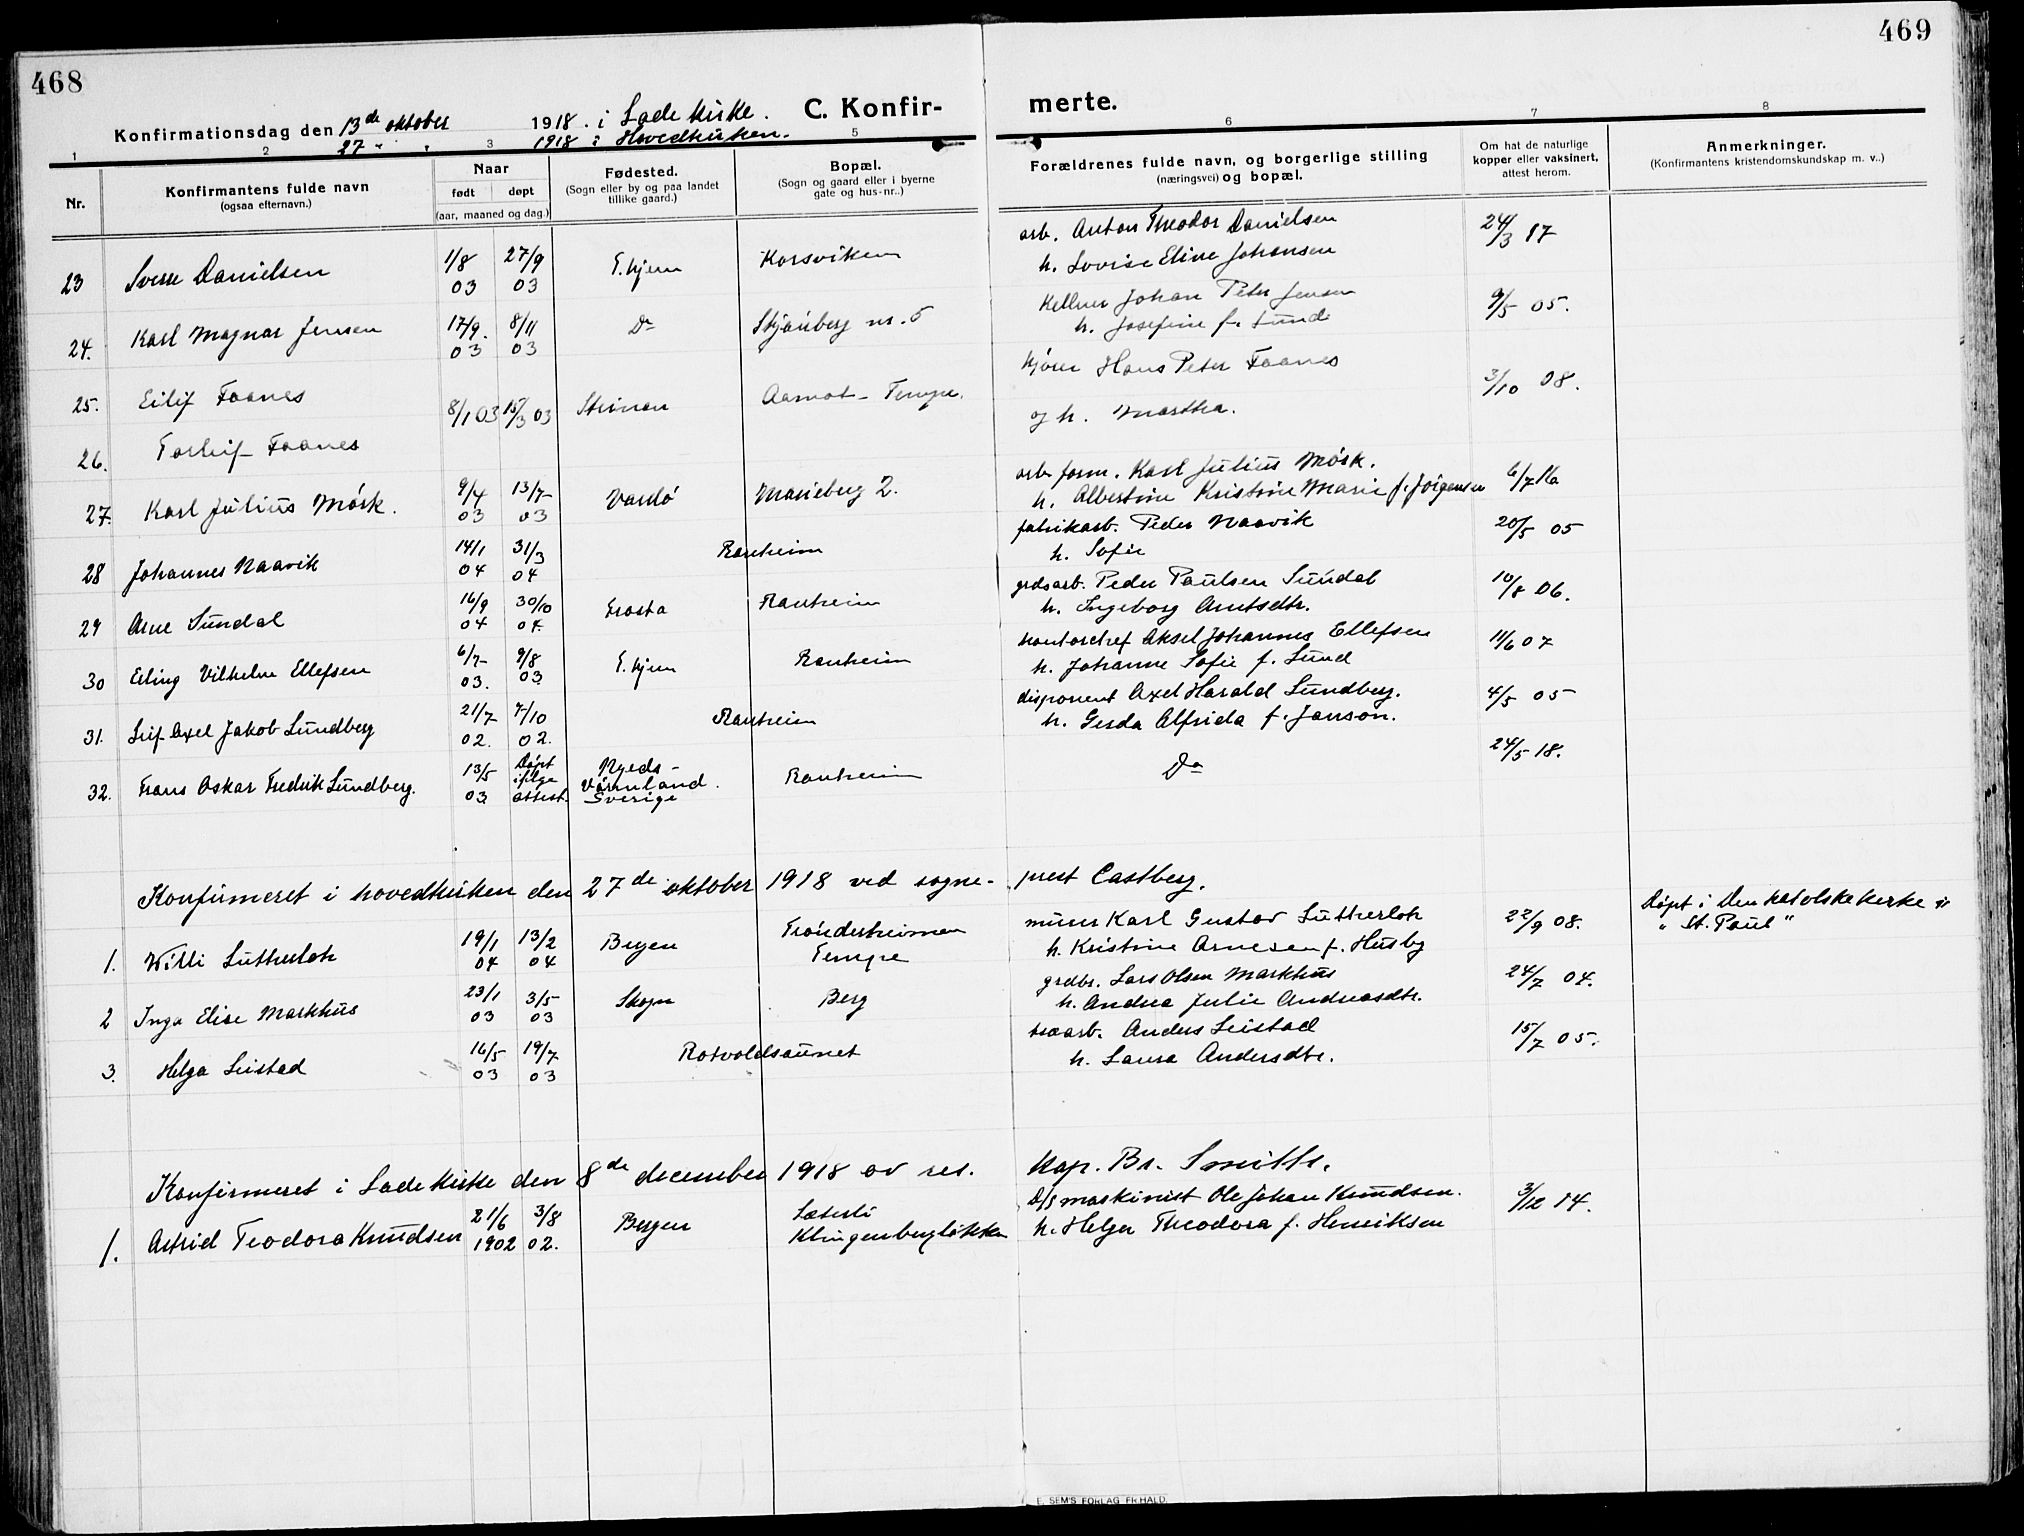 468
469
Konfirmationsdag den 13de oktober 1918. i Lade kirke. C. Konfirmerte.
27 " " 1918 i Hovedkirken.
1 2 3 5 6 7 8
Nr.
Konfirmantens fulde navn
(ogsaa efternavn.)
Naar
født døpt
(aar, maaned og dag.)
Fødested.
(Sogn eller by og paa landet
tillike gaard.)
Bopæl.
(Sogn og gaard eller i byerne
gate og hus-nr..)
Forældrenes fulde navn, og borgerlige stilling
(næringsvei) og bopæl.
Om hat de naturlige
kopper eller vaksinert,
attest herom.
Anmerkninger.
(Konfirmantens kristendomskundskap m. v..)
23 Sverre Danielsen 1/8 03 27/9 03 T.hjem Korsviken arb. Anton Theodor Danielsen 24/3 17
h. Lovise Eline Johansen
24. Karl Magnar Jensen 17/9. 03 8/11 03 Do Skjånberg nr. 5 Kellner Johan Peter Jensen 9/5 05.
h. Josefine f. Lunde
25. Eilif Faanes 8/1 03 15/3 03 Strinan Aamot - Tempe. kjører Hans Peter Faanes 3/10 08.
og h. Martha.
26. Torleif Faanes
27. Karl Julius Mörk. 9/4 03 13/7 03 Vardö Marieberg 2. arb. form. Karl Julius Mörk. 6/7 16
h. Albertine Kristine Marie f. Jörgensen
28 Johannes Naavik 14/1 04 31/3 04 Ranheim fabrikarb. Peder Naavik 20/5 05
h. Sofie
29 Arne Sundal 16/9 04 30/10 04. Frosta Ranheim grdsarb. Peder Paulsen Sundal 10/8 06.
h. Ingeborg Arntsdtr.
30 Erling Vilhelm Ellefsen 6/7 03. 9/8 03. T.hjem Ranheim kontorchef Aksel Johannes Ellefsen 11/6 07
h. Johanne Sofie f. Lund
31. Leif Axel Jakob Lundberg 21/7 02. 7/10 02. Ranheim disponent Axel Harald Lundberg. 4/5 05
h. Gerda Alfrida f. Janson.
32. Frans Oskar Fredrik Lundberg. 13/5 03 Døpt ifølge attest. Nyeds- Värmland. Sverige Ranheim Do 24/5 18.
Konfirmeret i hovedkirken den 27de oktober 1918 ved sogneprest Castberg.
1. Willi Lutherloh 19/1 04 13/2 04 Bergen Tröndesheimen Tempe murer Karl Gustav Lutherloh 22/9 08. Døpt i Den katolske kirke
h. Kristine Arnesen f. Husby " St. Paul "
2 Inga Elise Markhus 23/1 03 3/5 03 Skogn Berg grdbr. Lars Olsen Markhus 24/7 04.
h. Andrea Julie Andreasdtr.
3. Helga Leistad 16/5 03 19/7 03 Rotvoldsaunet Anders Leistad 15/7 05.
h. Laura Andersdtr.
Konfirmeret i Lade kirke den 8de december 1918 av res. kap. Br. Smitt.
1. Astrid Teodora Knudsen 21/6 1902 3/8 02. Bergen Klingenbergløkken D/s maskinist Ole Johan Knudsen. 3/12 14.
h. Helga Theodora f. Henriksen
E. SEM'S FORLAG FR.HALD.